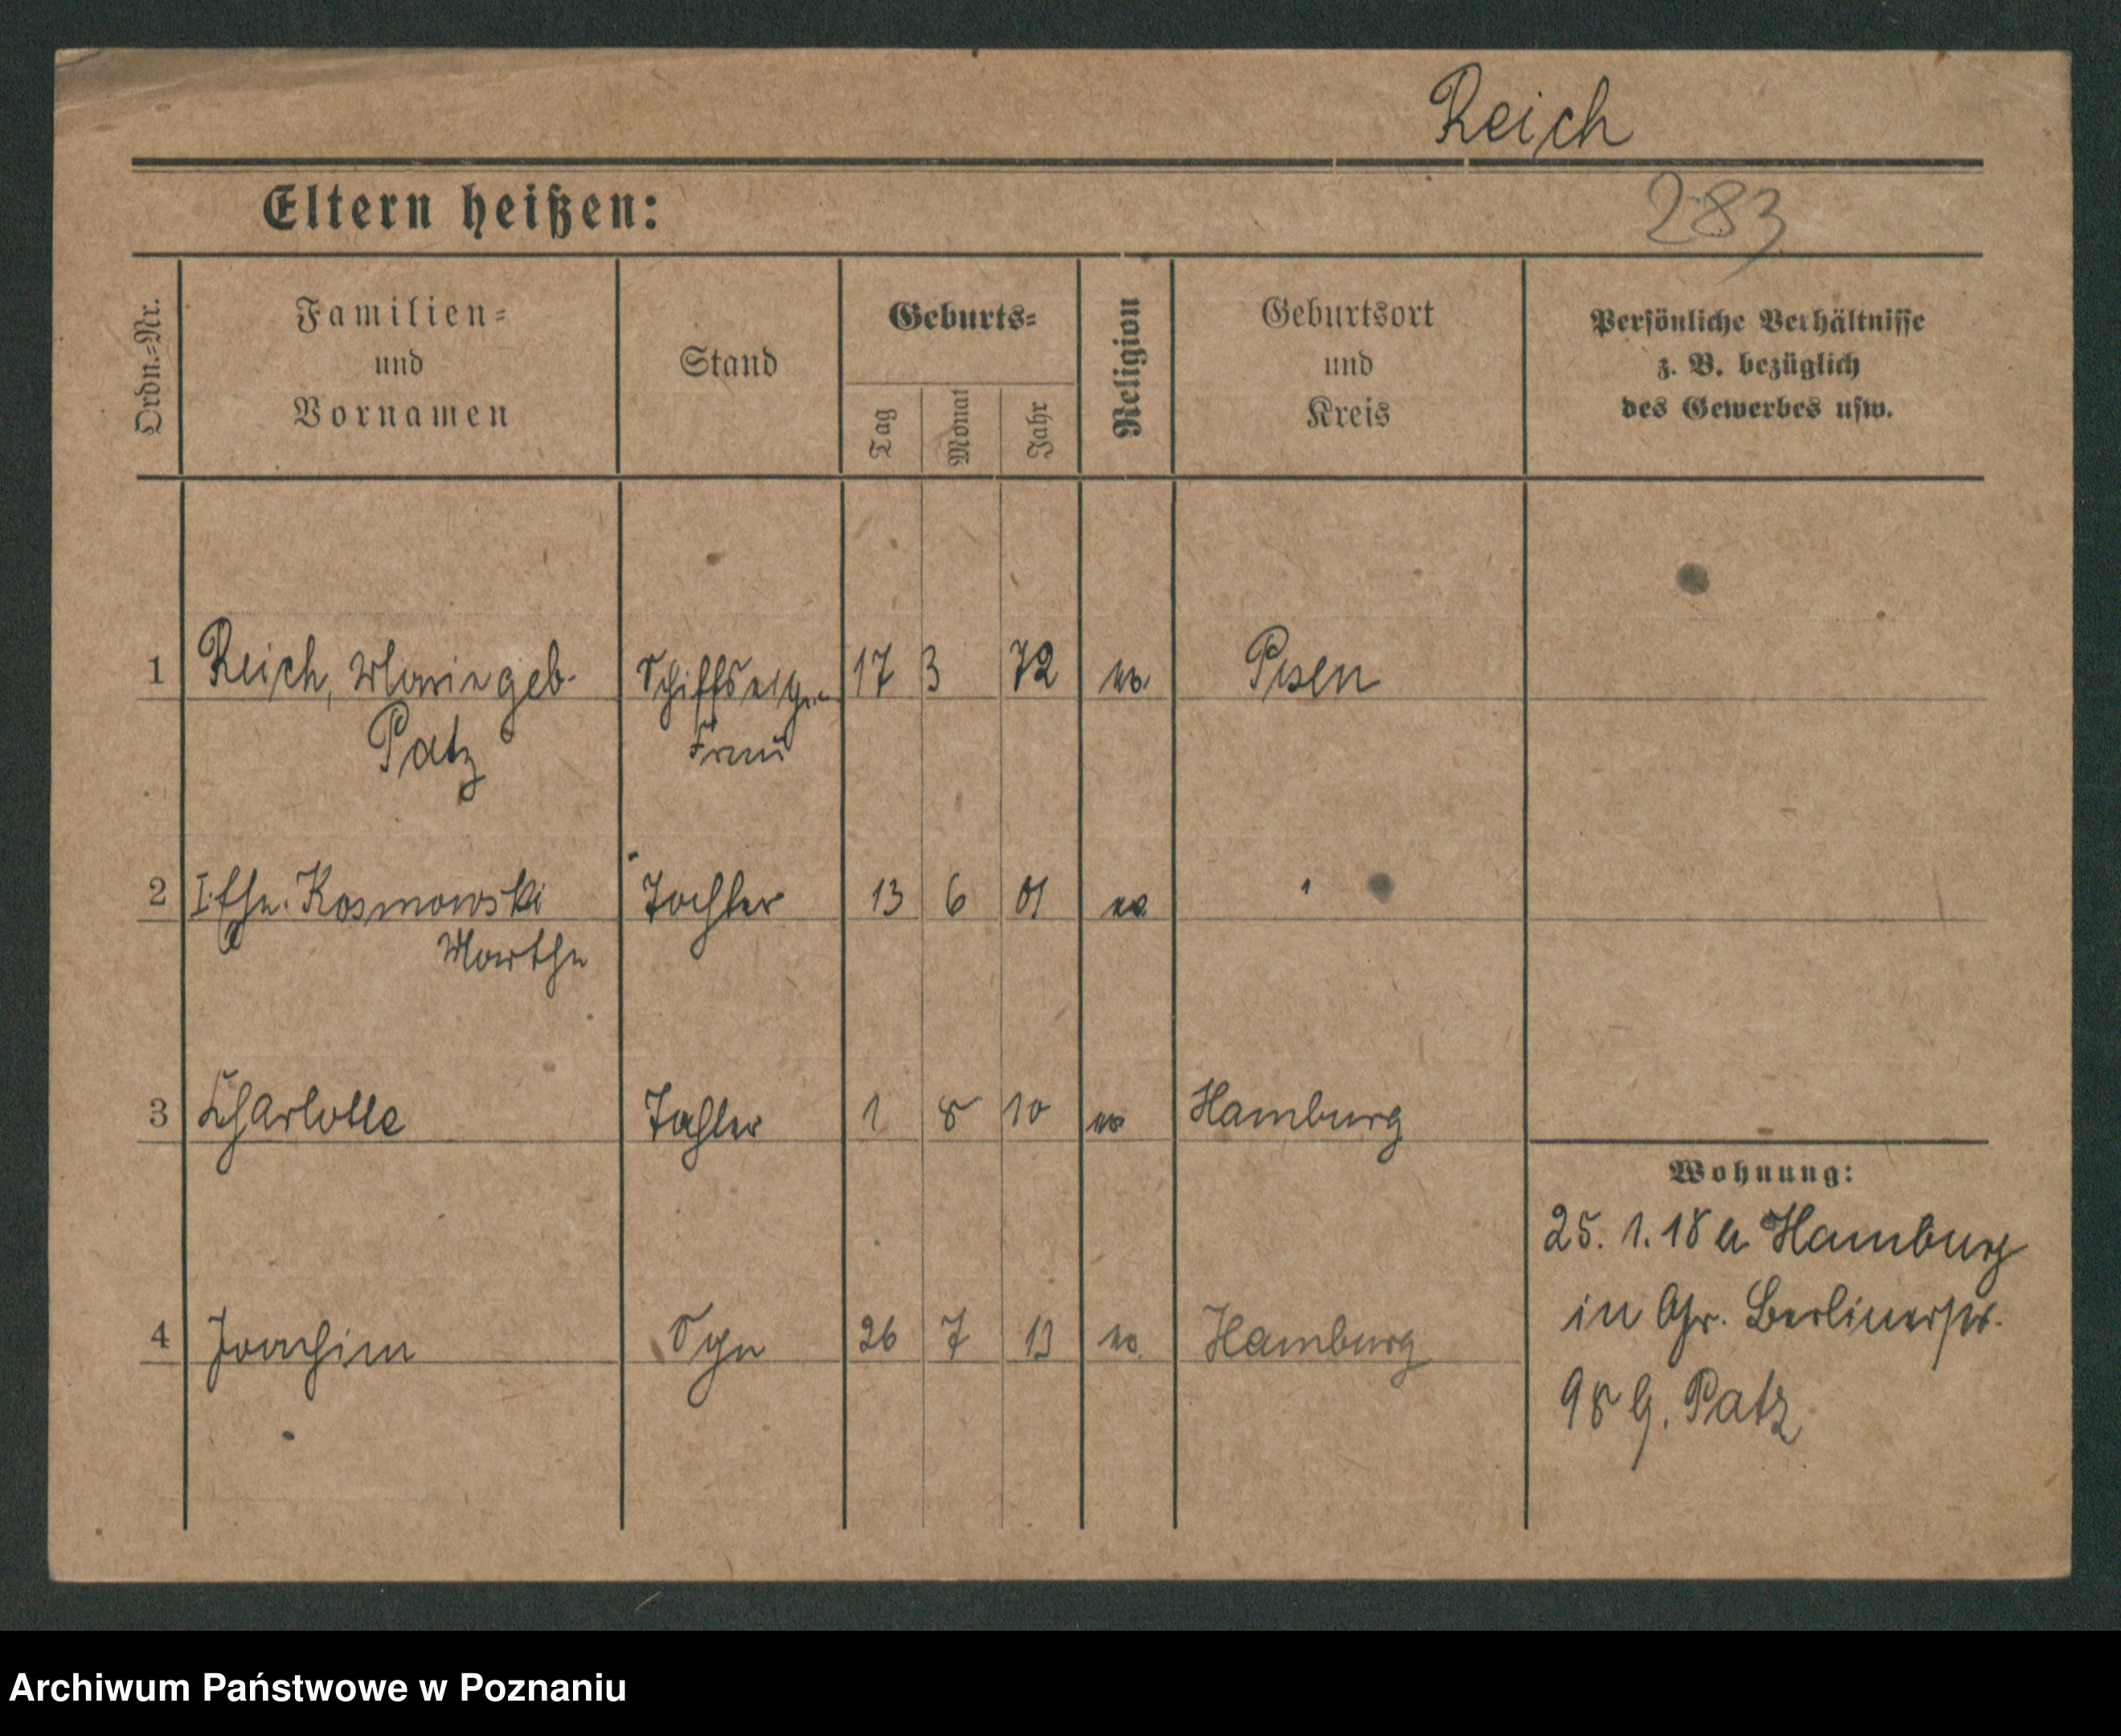 Reich
Eltern heißen:
283
Ordn.-Nr.
Familien-
und
Vornamen
Stand
Geburts-
Tag
Monat
Jahr
Religion
Geburtsort
und
Kreis
Persönliche Verhältnisse
z. B. bezüglich
des Gewerbes usw.
1 Reich, Marie geb. 17 3 72 ev. Posen
Patz Frau
2 I. Ehe. Kosmowski Tochter 13 6 01 ev. "
Marthe
3 Charlotte Tochter 1 8 10 ev Hamburg
Wohnung:
25. 1. 18 a Hamburg
in Gr. Berlinerstr.
4 Joachim Sohn 26 7 13 ev. Hamburg
98 b. Patz
Archiwum Państwowe w Poznaniu